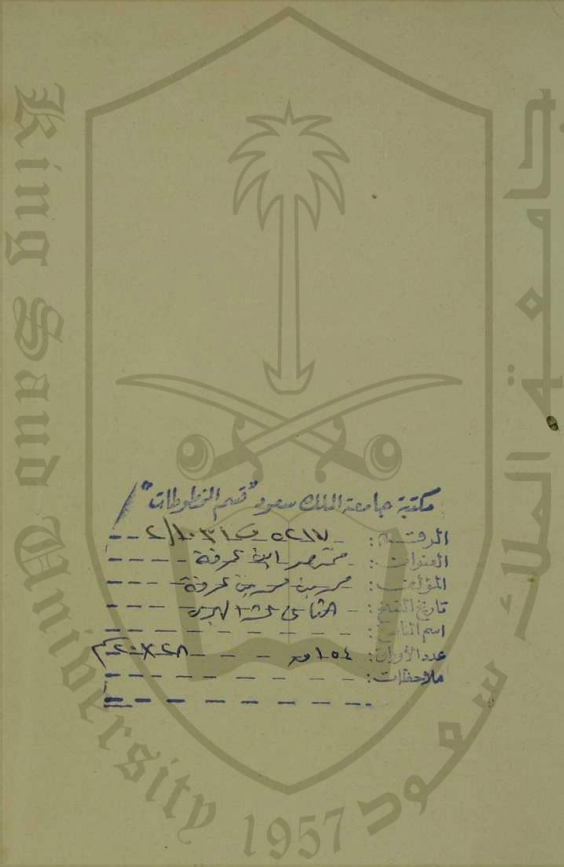 King Saud University 1957
جامعة الملك سعود
مكتبة جامعة الملك سعود "قسم المخطوطات"
الرقم: ٥٢١٧
العنوان: مختصر ابن عرفة
المؤلف: محمد بن محمد بن عرفة
تاريخ النسخ: الثاني عشر الهجري
اسم الناسخ:
عدد الأوراق: ١٥٤ ق
ملاحظات: